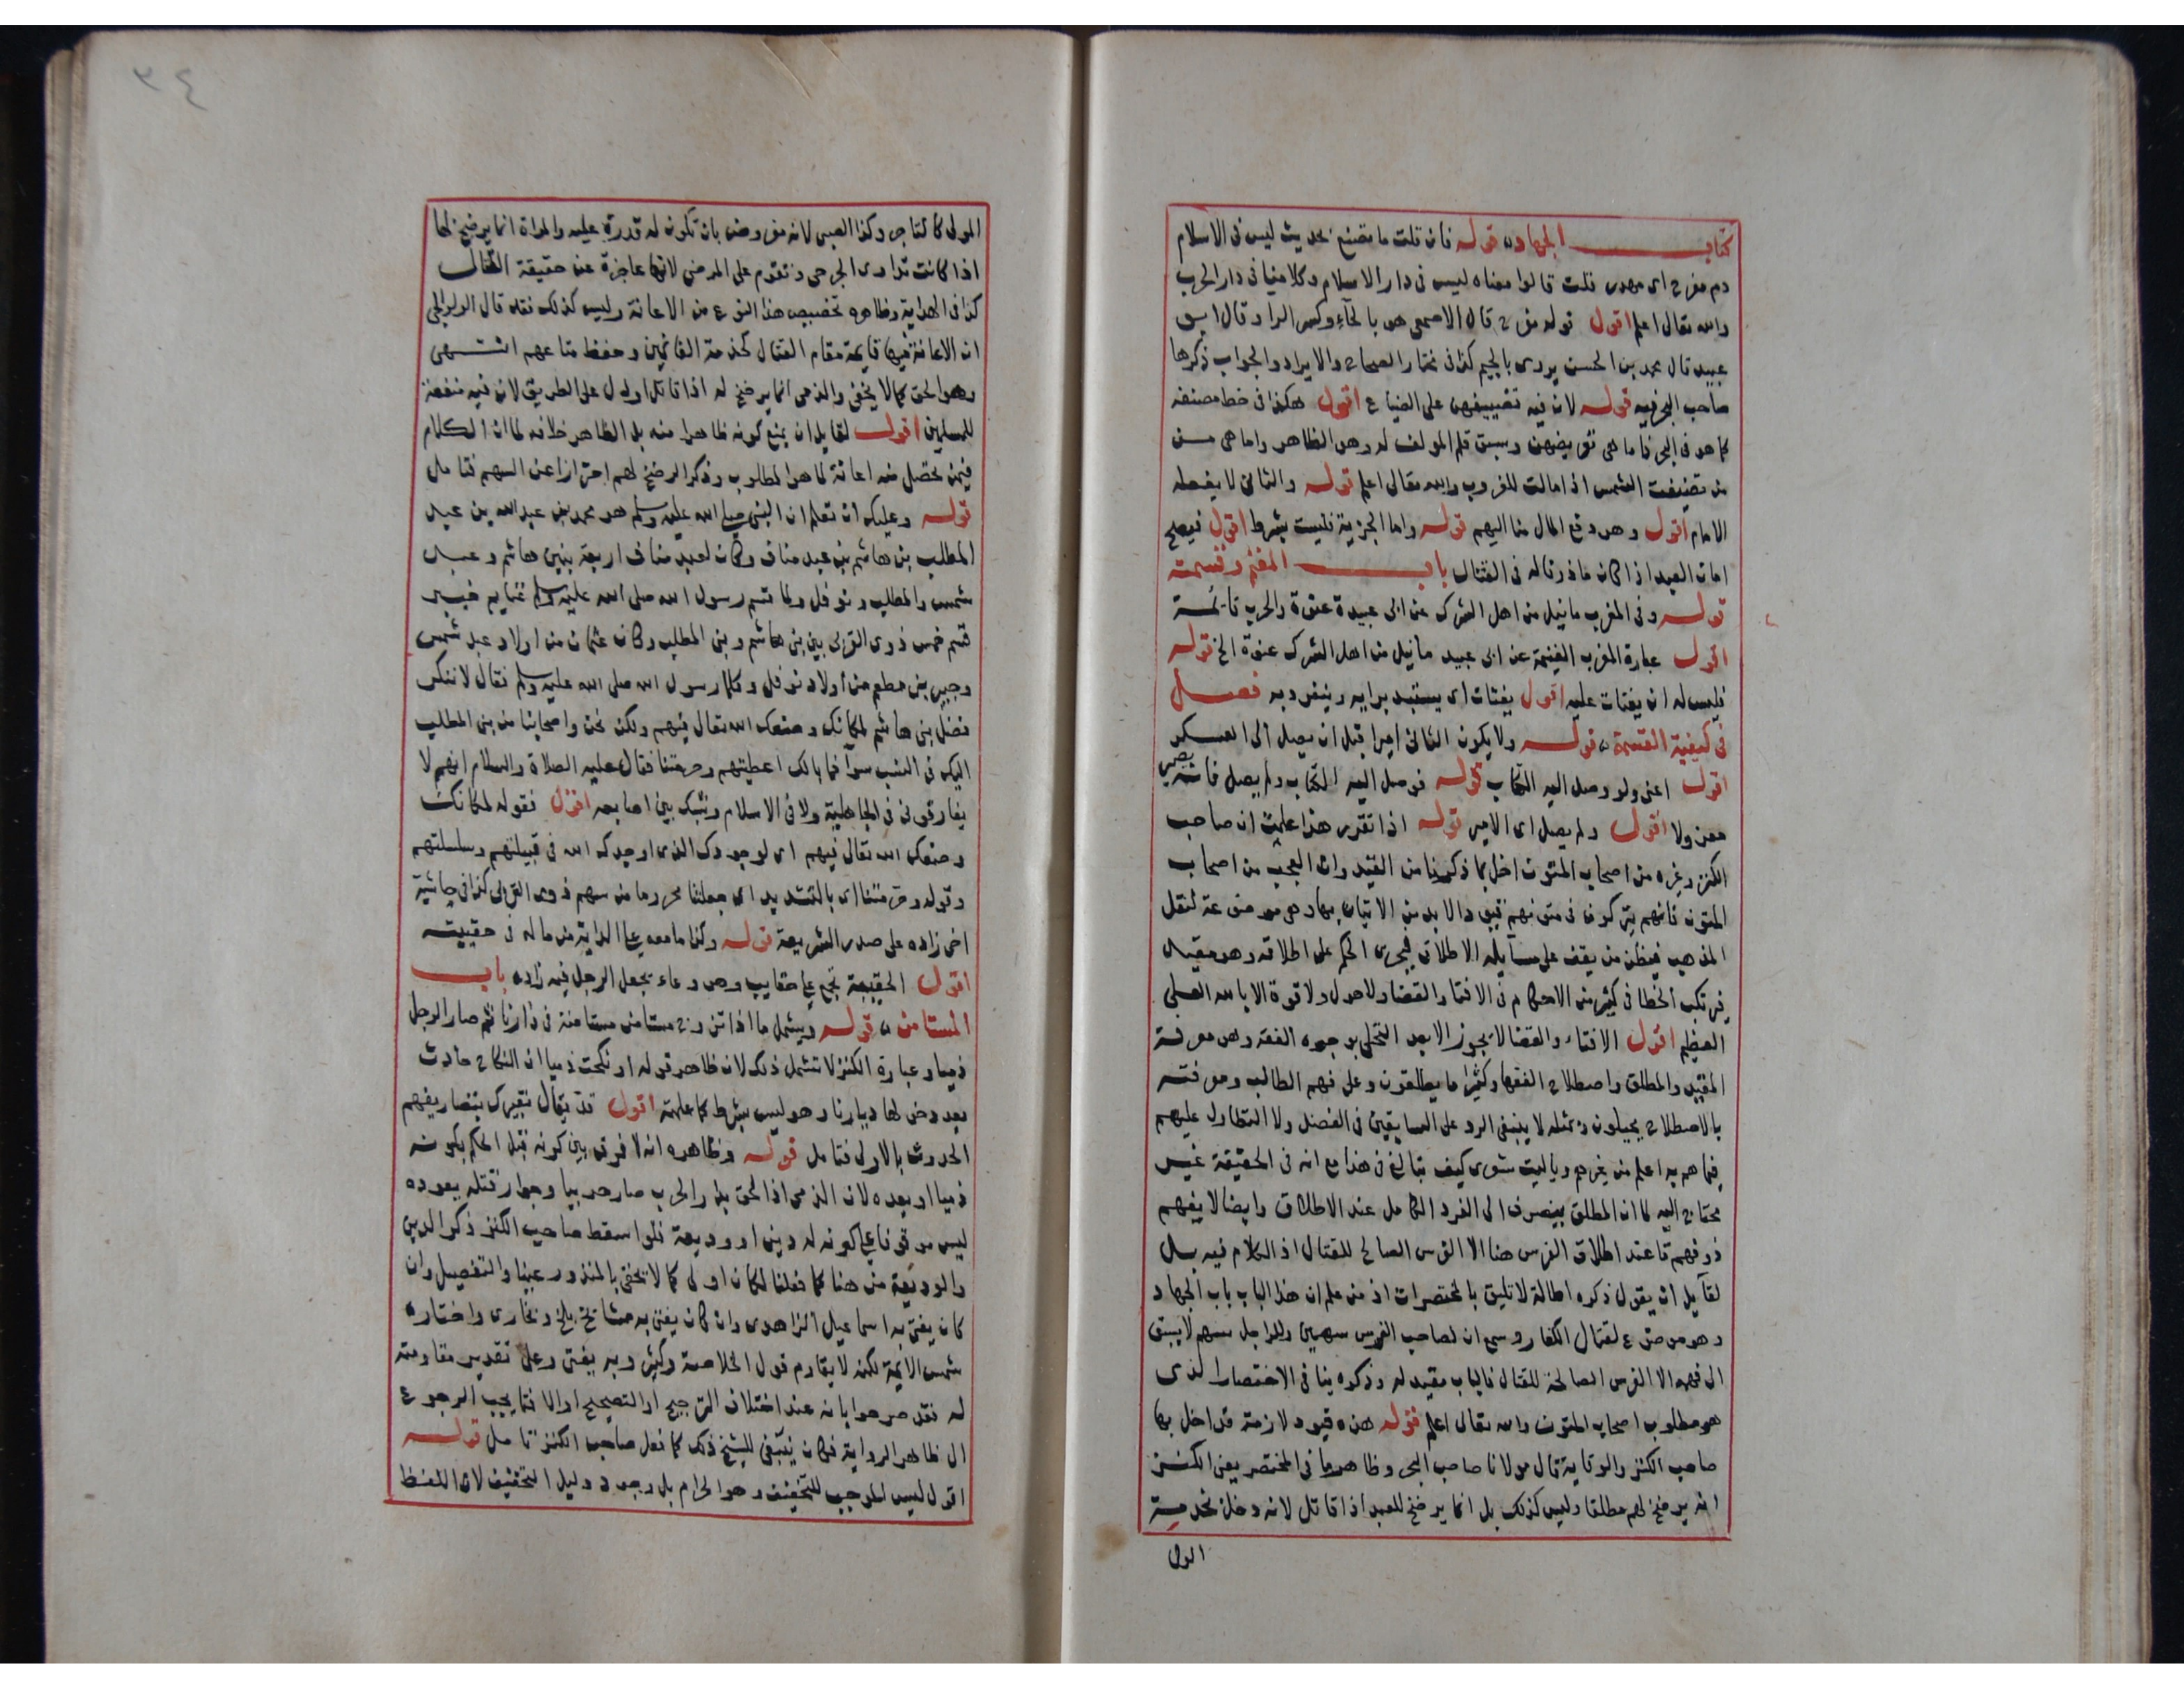 كتاب الجهاد قوله فان قلت ما تصنع بحديث ليس فى الاسلام
دم مفرح اى مهدر قلت قالوا معناه ليس فى دار الاسلام وكلامنا فى دار الحرب
والله تعالى اعلم اقول قوله مفرح قال الاصمعى هو بالحآء وكسر الراء وقال ابو
عبيد قال محمد بن الحسن يروى بالجيم كذا فى مختار الصحاح والايراد والجواب ذكرها
صاحب البحر فيه قوله لان فيه تضييفهن على الضياع اقول هكذا فى خط مصنفه
كما هو فى البحر فاما هى تعريضهن وسبق قلم المولف له وهو الظاهر واما هى من
من تضيفت الشمس اذا مالت للغروب والله تعالى اعلم قوله والثانى لا يفعله
الامام اقول وهو دفع المال منا اليهم قوله واما الجزية فليست بشرط اقول فيصح
امان العبد اذا كان ماذونا له فى القتال باب المغنم وقسمته
قوله وفى المغرب ما نيل من اهل الشرك عن ابى عبيدة عنوة والحرب قائمة
اقول عبارة المغرب الغنيمة عن ابى عبيد ما نيل من اهل الشرك عنوة الخ قوله
فليس له ان يفتات عليه اقول يفتات اى يستبد برايه وينفرد به فصل
فى كيفية القسمة قوله ولا يكون الثانى اميرا قبل ان يصل الى العسكر
اقول اعنى ولو وصل اليه الكتاب قوله فوصل اليه الكتاب ولم يصل فانه يصير
معزولا اقول ولم يصل اى الامير قوله اذا تقرر هذا علمت ان صاحب
الكنز وغيره من اصحاب المتون اخل بما ذكرنا من القيد وان العجب من اصحاب
المتون فانهم يتركون فى متونهم قيودا لابد من الاتيان بها وهى موضوعة لنقل
المذهب فيظن من يقف على مسآيله الاطلاق فيجرى الحكم على اطلاقه وهو مقيد
فيرتكب الخطا فى كثير من الاحكام فى الافتا والقضا ولا حول ولا قوة الا بالله العلى
العظيم اقول الافتاء والقضا لا يجوز الا بعد التحلى بوجوه الفقه وهو معرفة
المقيد والمطلق واصطلاح الفقها وكثيرا ما يطلقون وعلى فهم الطالب ومعرفته
بالاصطلاح يحيلون ومثله لا ينبغى الرد على السابقين فى الفضل ولا التطاول عليهم
فيما هم به اعلم من غيرهم وياليت شعرى كيف يبالغ فى هذا مع انه فى الحقيقة غير
محتاج اليه لما ان المطلق ينصرف الى الفرد الكامل عند الاطلاق وايضا لا يفهم
ذو فهم قاعند اطلاق الفرس هنا الا الفرس الصالح للقتال اذ الكلام فيه بل
لقآيل ان يقول ذكره اطالة لا تليق بالمختصرات اذ من علم ان هذا الباب باب الجهاد
وهو موضوع لقتال الكفار وسمع ان لصاحب الفرس سهمين وللراجل سهم لا يسبق
الى فهمه الا الفرس الصالحة للقتال فالباب مقيد له وذكره ينافى الاختصار الذى
هو مطلوب اصحاب المتون والله تعالى اعلم قوله هذه قيود لازمة قد اخل بها
صاحب الكنز والوقاية قال مولانا صاحب البحر وظاهر ما فى المختصر يعنى الكنز
انه يرضخ لهم مطلقا وليس كذلك بل انما يرضخ للعبد اذا قاتل لانه دخل لخدمة
المولى
٣٤
المولى كالتاجر وكذا الصبى لانه مفروض بان تكون له قدرة عليه والمراة انما يرضخ لها
اذا كانت تداوى الجرحى وتقوم على المرضى لانها عاجزة عن حقيقة القتال
كذا فى الهداية وظاهره تخصيص هذا النوع من الاعانة وليس كذلك فقد قال الولوالجى
ان الاعانة منها قايمة مقام القتال كخدمة الغانمين وحفظ متاعهم انتهى
وهو الحق كما لا يخفى والذمى انما يرضخ له اذا قاتل او دل على الطريق لان فيه منفعة
للمسلمين اقول لقايل ان يمنع كونه ظاهرا منه بل الظاهر خلافه لما ان الكلام
فيمن يحصل منه اعانة لما هو المطلوب وذكر الرضخ لهم احترازا عن السهم فتامل
قوله وعليك ان تعلم ان النبى صلى الله عليه وسلم هو محمد بن عبد الله بن عبد
المطلب بن هاشم بن عبد مناف وكان لعبد مناف اربعة بنين هاشم وعبد
شمس والمطلب ونوفل ولما قسم رسول الله صلى الله عليه وسلم غنايم خيبر
قسم خمس ذوى القربى بين بنى هاشم وبنى المطلب وكان عثمان من اولاد عبد شمس
وجبير بن مطعم من اولاد نوفل وكلما رسول الله صلى الله عليه وسلم فقال لا ننكر
فضل بنى هاشم لمكانك وضعك الله تعالى فيهم ولكن نحن واصحابنا من بنى المطلب
اليك فى النسب سوآ فما بالك اعطيتهم وحرمتنا فقال عليه الصلاة والسلام انهم لا
يفارقونى فى الجاهلية ولا فى الاسلام وشبك بين اصابعه اقول فقوله لمكانك
وضعك الله تعالى فيهم اى لوجودك الذى اوجدك الله فى قبيلتهم وسلسلتهم
وقوله وحرمتنا اى بالتشديد اى جعلتنا محروما من سهم ذوى القربى كذا فى حاشية
اخى زاده على صدر الشريعة قوله وكذا ما معه على الدابة من ماله فى حقيبته
اقول الحقيبة تجمع على حقايب وهو وعاء يجعل الرجل فيه زاده باب
المستامن قوله ويشمل ما اذا تزوج مستامن مستامنة فى دارنا ثم صار الرجل
ذميا وعبارة الكنز لا تشمل ذلك لان ظاهر قوله او نكحت ذميا ان النكاح حادث
بعد دخولها ديارنا وهو ليس بشرط كما علمته اقول قد يقال تغيرك بتصاريفهم
الحدوث بالاولى فتامل قوله وظاهره انه لا فرق بين كونه قبل الحكم بكونه
ذميا او بعده لان الذمى اذا لحق بدار الحرب صار حربيا وجواز قتله بعوده
ليس موقوفا على كونه له دين او وديعة فلو اسقط صاحب الكنز ذكر الدين
والوديعة من هنا كما فعلنا لكان اولى كما لا يخفى بالمنذور عينا والتفصيل وان
كان يفتى به اسماعيل الزاهدى وان كان يفتى به مشايخ بلخ وبخارى واختاره
شمس الايمة لكنه لا يقاوم قول الخلاصة وكثير وبه يفتى وعلى تقدير مقاومته
له فقد صرحوا بانه عند اختلاف الترجيح او التصحيح او الافتا يجب الرجوع
الى ظاهر الرواية فكان ينبغى للشيخ ذلك كما فعل صاحب الكنز تامل قوله
اقول ليس الموجب للتخفيف وهو الحرام بل وجود دليل التخفيف لان اللفظ